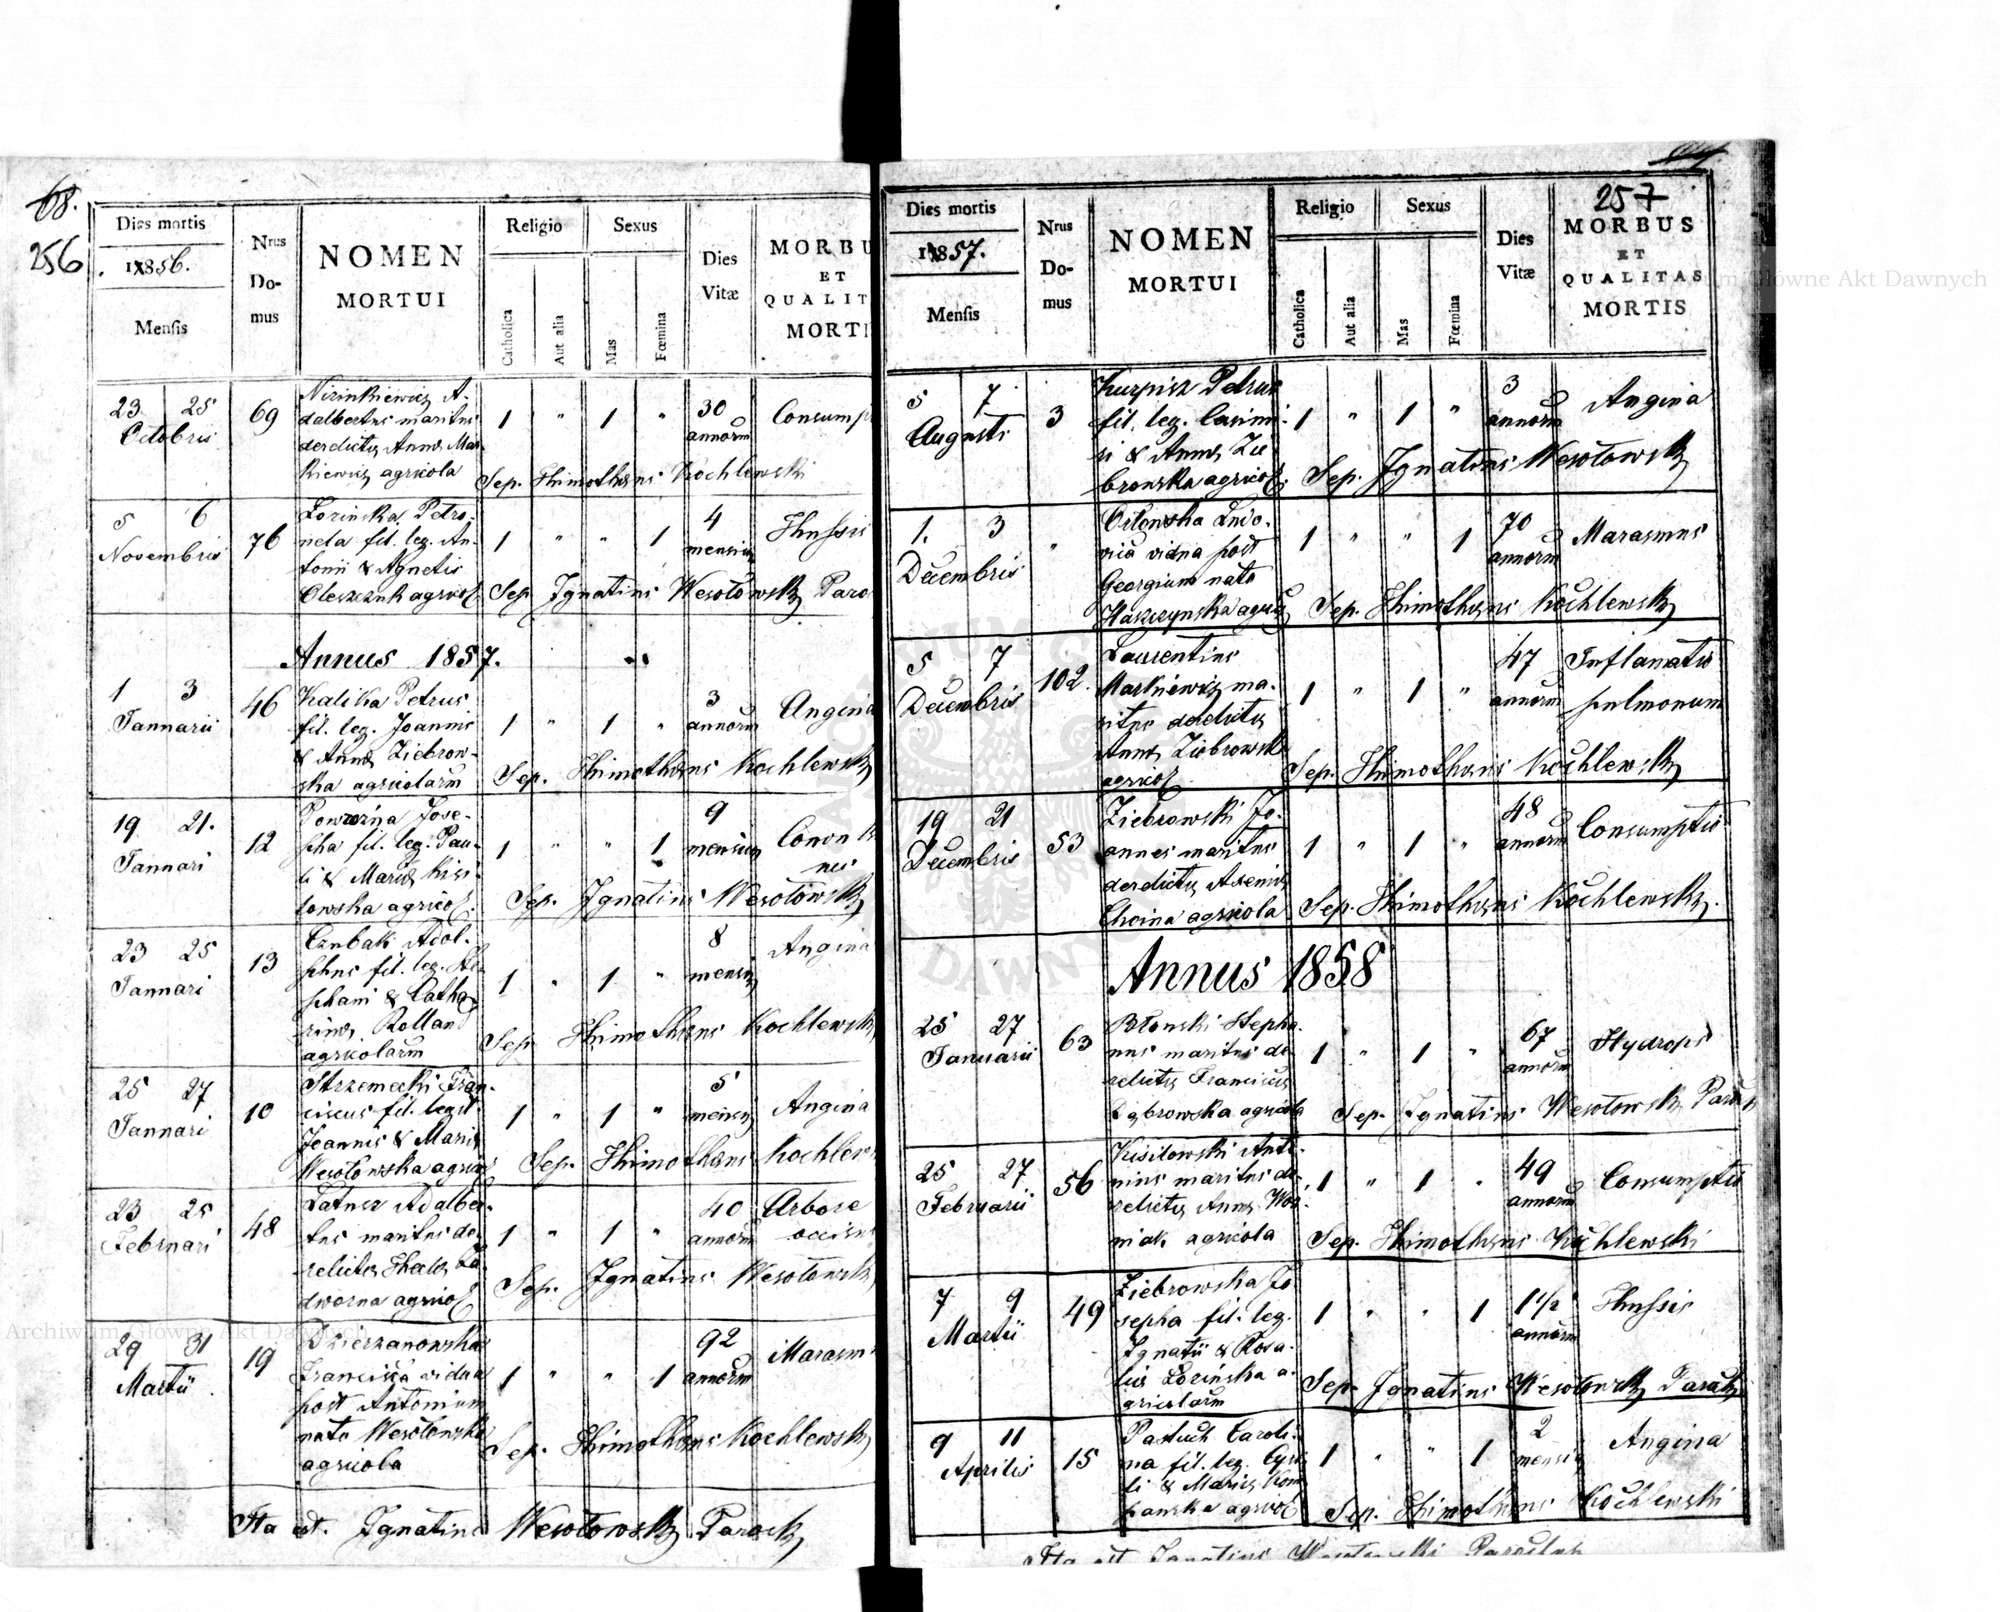 68.
256
Dies mortis
1856.
Mensis
Nrus
Do-
mus
NOMEN
MORTUI
Religio
Catholica
Aut alia
Sexus
Mas
Fœmina
Dies
Vitæ
MORBU
ET
QUALIT
MORTI
23 25
Octobris
69
Nizinkiewicz A-
dalbertus maritus
derelictus Annæ Mar-
kiewicz agricola
1 " 1 "
30
annorum
Consump
Sep. Thimotheus Kochlewski
5 6
Novembris
76
Lozinska Petro-
nela fil. leg. An-
tonii & Agnetis
Oleszczuk agricol.
1 " " 1
4
mensium
Thussis
Sep. Ignatius Wesołowski Paro
Annus 1857.
1 3
Januarii
46
Kalika Petrus
fil. leg. Joannis
& Annæ Ziebrow-
ska agricolarum
1 " 1 "
3
annorum
Angina
Sep. Thimotheus Kochlewski
19 21.
Januari
12
Josе-
pha fil. leg. Pau-
li & Mariæ Kisi-
lowska agricol.
1 " " 1
9
mensium
Sep. Ignatius Wesołowski
23 25
Januari
13
Czubak Adol-
phus fil. leg. Ste-
phani & Catha-
rinæ Rolland
agricolarum
1 " 1 "
8
mensium
Angina
Sep. Thimotheus Kochlewski
25 27
Januari
10
Strzemecki Fran-
ciscus fil. legit.
Joannis & Mariæ
Wesołowska agricol.
1 " 1 "
5
mensium
Angina
Sep. Thimotheus Kochlew
23 25
Februari
48
Adalber-
tus maritus de-
relictus Theclæ
agricol.
1 " 1 "
40
annorum
Arbore
occisus
Sep. Ignatius Wesołowsk
29 31
Martii
19
Dzierzanowska
Francisca vidua
post Antonium
nata Wesołowska
agricola
1 " " 1
92
annorum
Marasm
Sep. Thimotheus Kochlewski
Ita est. Ignatius Wesołowski Paroch
257
Dies mortis
1857.
Mensis
Nrus
Do-
mus
NOMEN
MORTUI
Religio
Catholica
Aut alia
Sexus
Mas
Fœmina
Dies
Vitæ
MORBUS
ET
QUALITAS
MORTIS
5 7
Augusti
3
Kurpisz Petrus
fil. leg. Casimi-
ri & Annæ Zie-
browska agricol.
1 " 1 "
3
annorum
Angina
Sep. Ignatius Wesołowski
1. 3
Decembris
"
Orłowska Ludo-
vica vidua post
Georgium nata
1 " " 1
70
annorum
Marasmus
Sep. Thimotheus Kochlewski
5 7
Decembris
102.
Laurentius
Markiewicz ma-
ritus derelictus
Annæ Ziebrowska
agricol.
1 " 1 "
47
annorum
Inflamatio
pulmonum
Sep. Thimotheus Kochlewski
19 21
Decembris
53
Ziebrowski Jo-
annes maritus
derelictus Axeniæ
Choina agricola
1 " 1 "
48
annorum
Consumptio
Sep. Thimotheus Kochlewski.
Annus 1858
25 27
Januarii
63
Błonski Stepha-
nus maritus de-
relictus Franciscæ
Dąbrowska agricola
1 " 1 "
67
annorum
Hydrops
Sep. Ignatius Wesołowski Paroch
25 27
Februarii
56
Kisilowski Anto-
nius maritus de-
relictus Annæ Woź-
niak agricola
1 " 1 "
49
annorum
Consumptio
Sep. Thimotheus Kochlewski
7 9
Martii
49
Ziebrowska Jo-
sepha fil. leg.
Ignatii & Rosa-
liæ Lozinska a-
gricolarum
1 " " 1
1 1/2
annorum
Thussis
Sep. Ignatius Wesołowski Paroch
9 11
Aprilis
15
Pastuch Caroli-
na fil. leg. Cyri-
li & Mariæ Kom
panska agricol
1 " " 1
2
mensium
Angina
Sep. Thimotheus Kochlewski
Ita est Ignatius Wesołowski Parochus
Archiwum Główne Akt Dawnych
um Główne Akt Dawnych